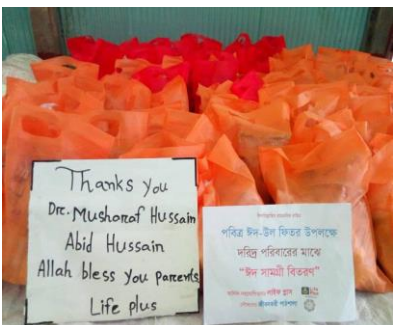 Thanks you
Dre. Mushoraf Hussain
Abid Hussain
Allah bless you parents
Life plus
পবিত্র ঈদ-উল ফিতর উপলক্ষে
দরিদ্র পরিবারের মাঝে
“ঈদ সামগ্রী বিতরণ”